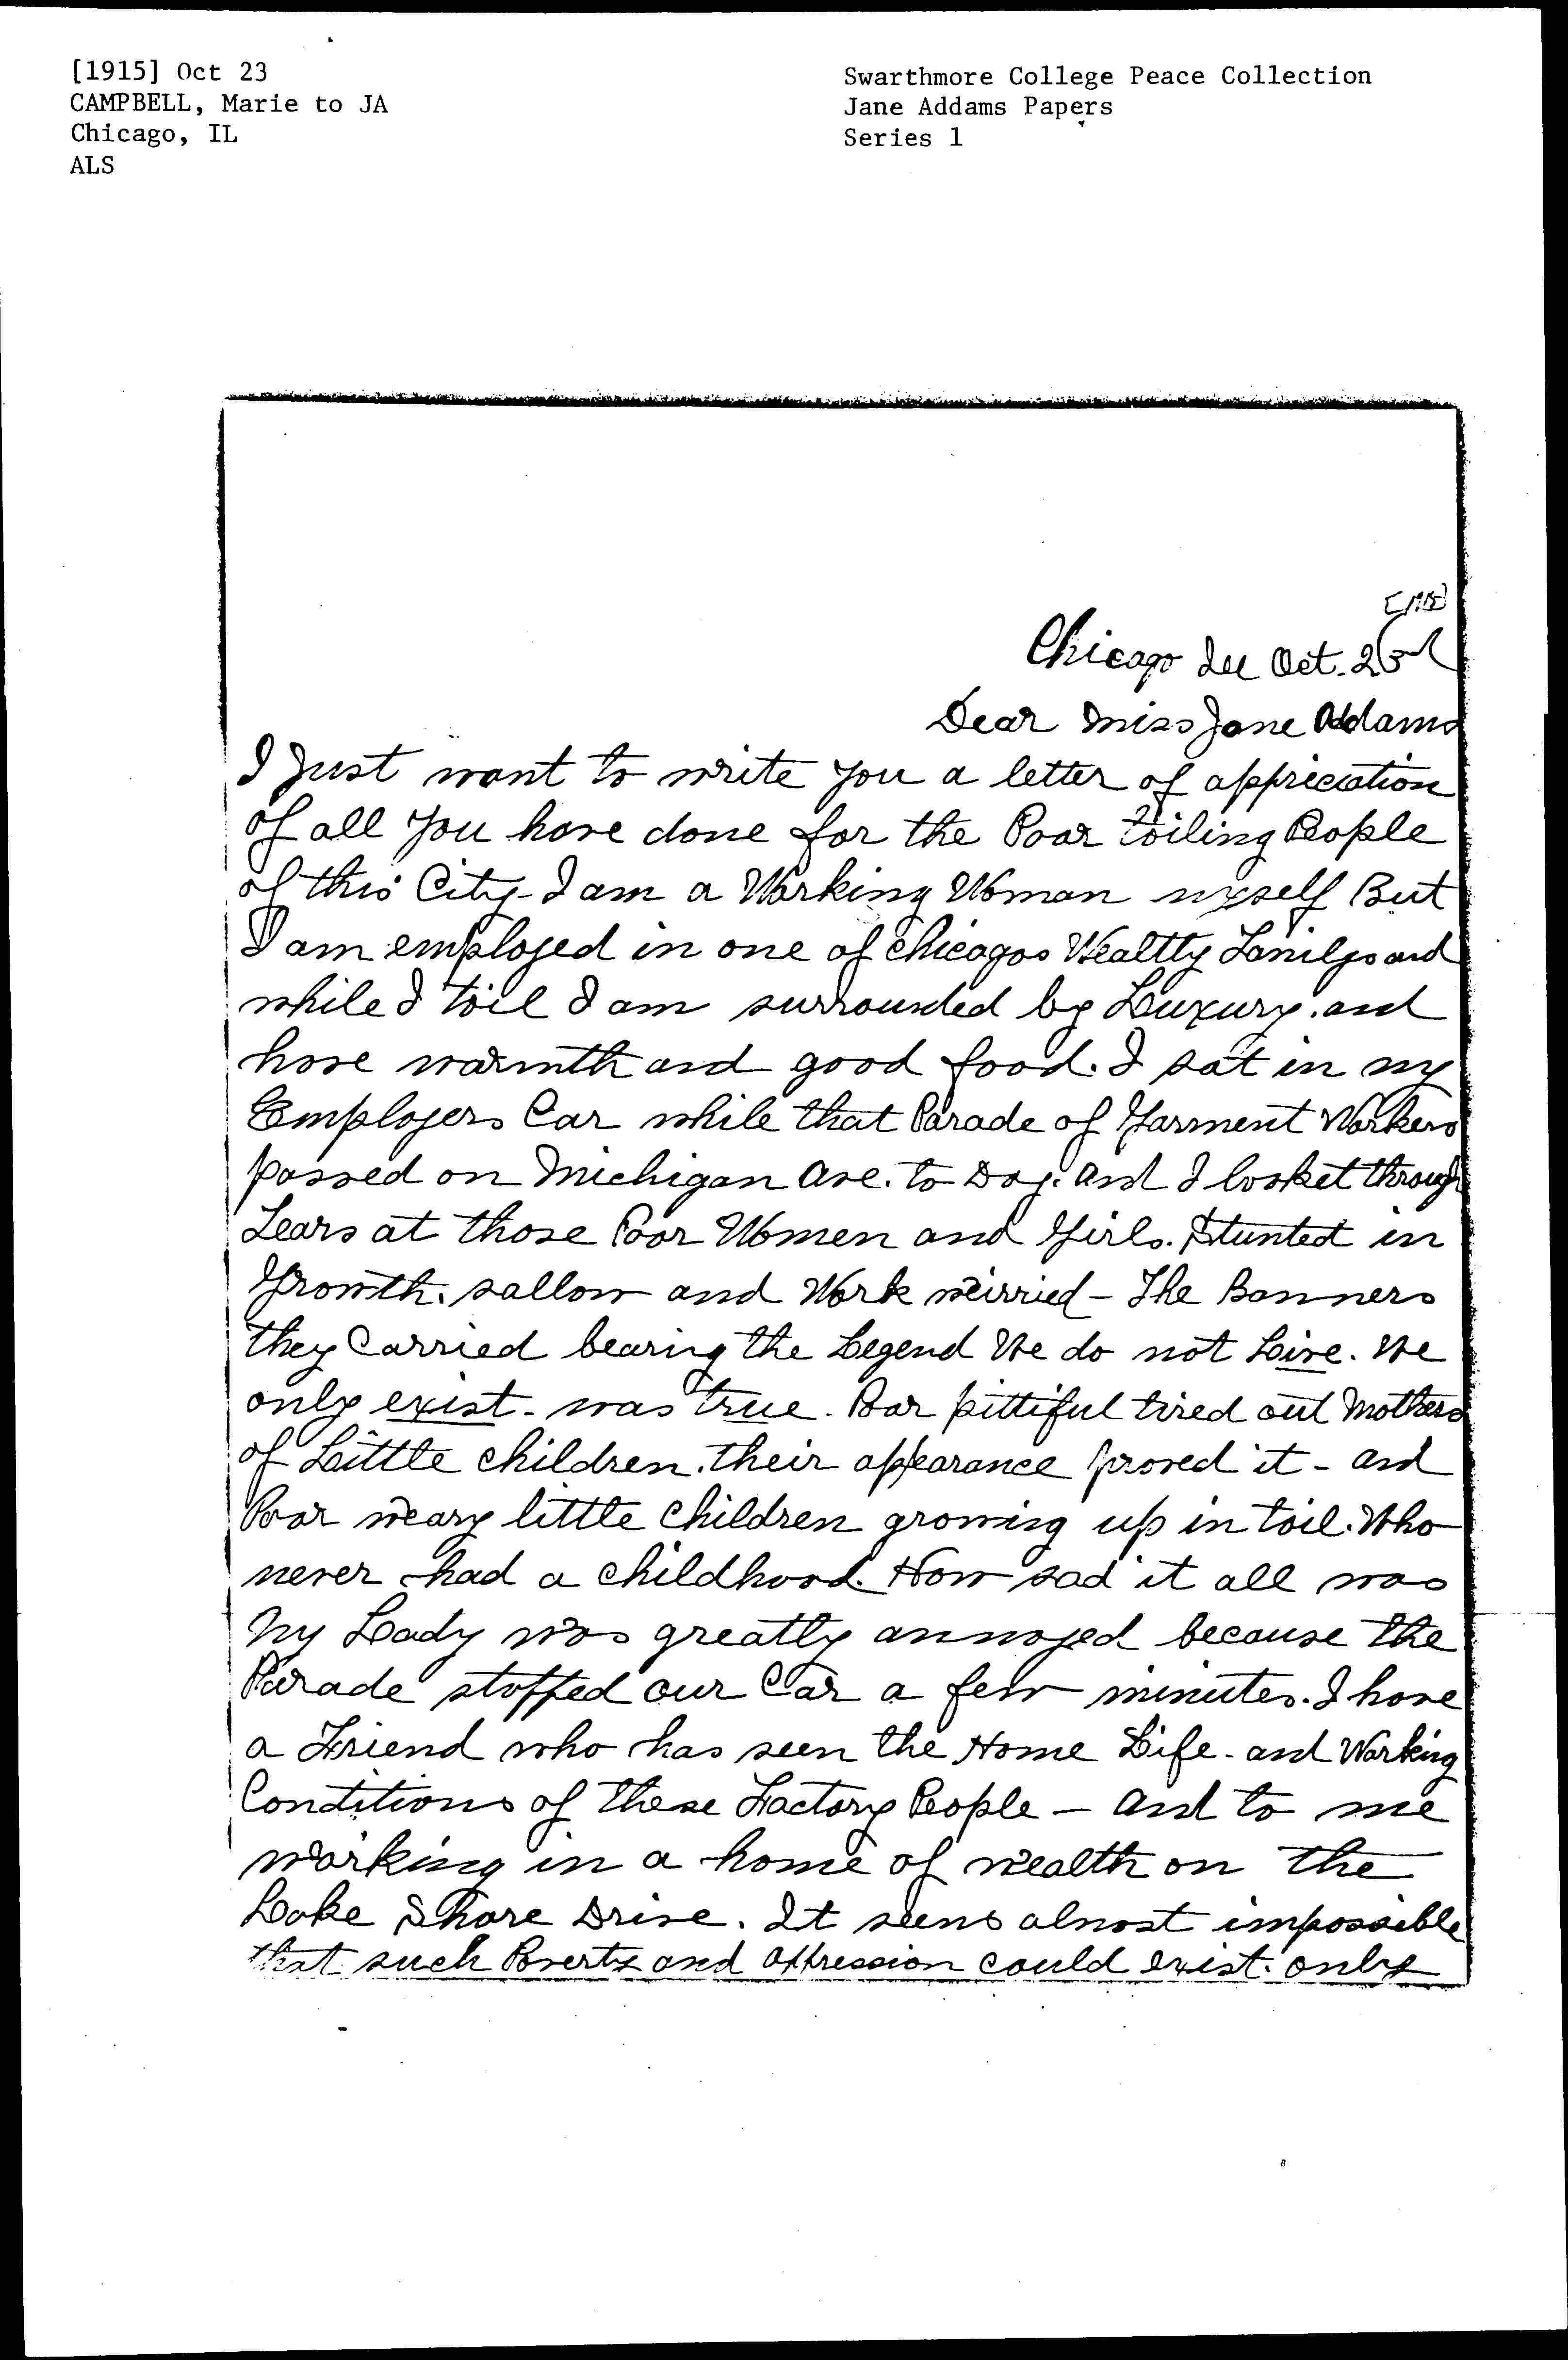 [1915] Oct 23
CAMPBELL, Marie to JA
Chicago, IL
ALS
Swarthmore College Peace Collection
Jane Addams Papers
Series 1
[1915]
Chicago Ill Oct. 23rd
Dear Miss Jane Addams
I Just want to write you a letter of appreciation
of all you have done for the Poor toiling People
of this City. I am a Working Woman myself But
I am employed in one of Chicagos Wealtty Familys and
while I toil I am surrounded by Luxury. and
have warmth and good food. I sat in my
Employers Car while that Parade of Garment Workers
passed on Michigan Ave. to Day. and I looket through
Tears at those Poor Women and Girls. Stunted in
Growth. sallow and Work wirried - The Banners
they Carried bearing the Legend We do not Live. We
only exist. was true. Poor pittiful tired out Mothers
of Little children. their apearance proved it - and
Poor weary little Children growing up in toil. Who
never had a childhood. How sad it all was
My Lady was greatly annoyed because the
Parade stopped our Car a few minutes. I have
a Friend who has seen the Home Life - and Working
Conditions of these Factory People - and to me
working in a home of wealth on the
Lake Shore Drive. It seems almost impossible
that such Poverty and oppression could exist. only